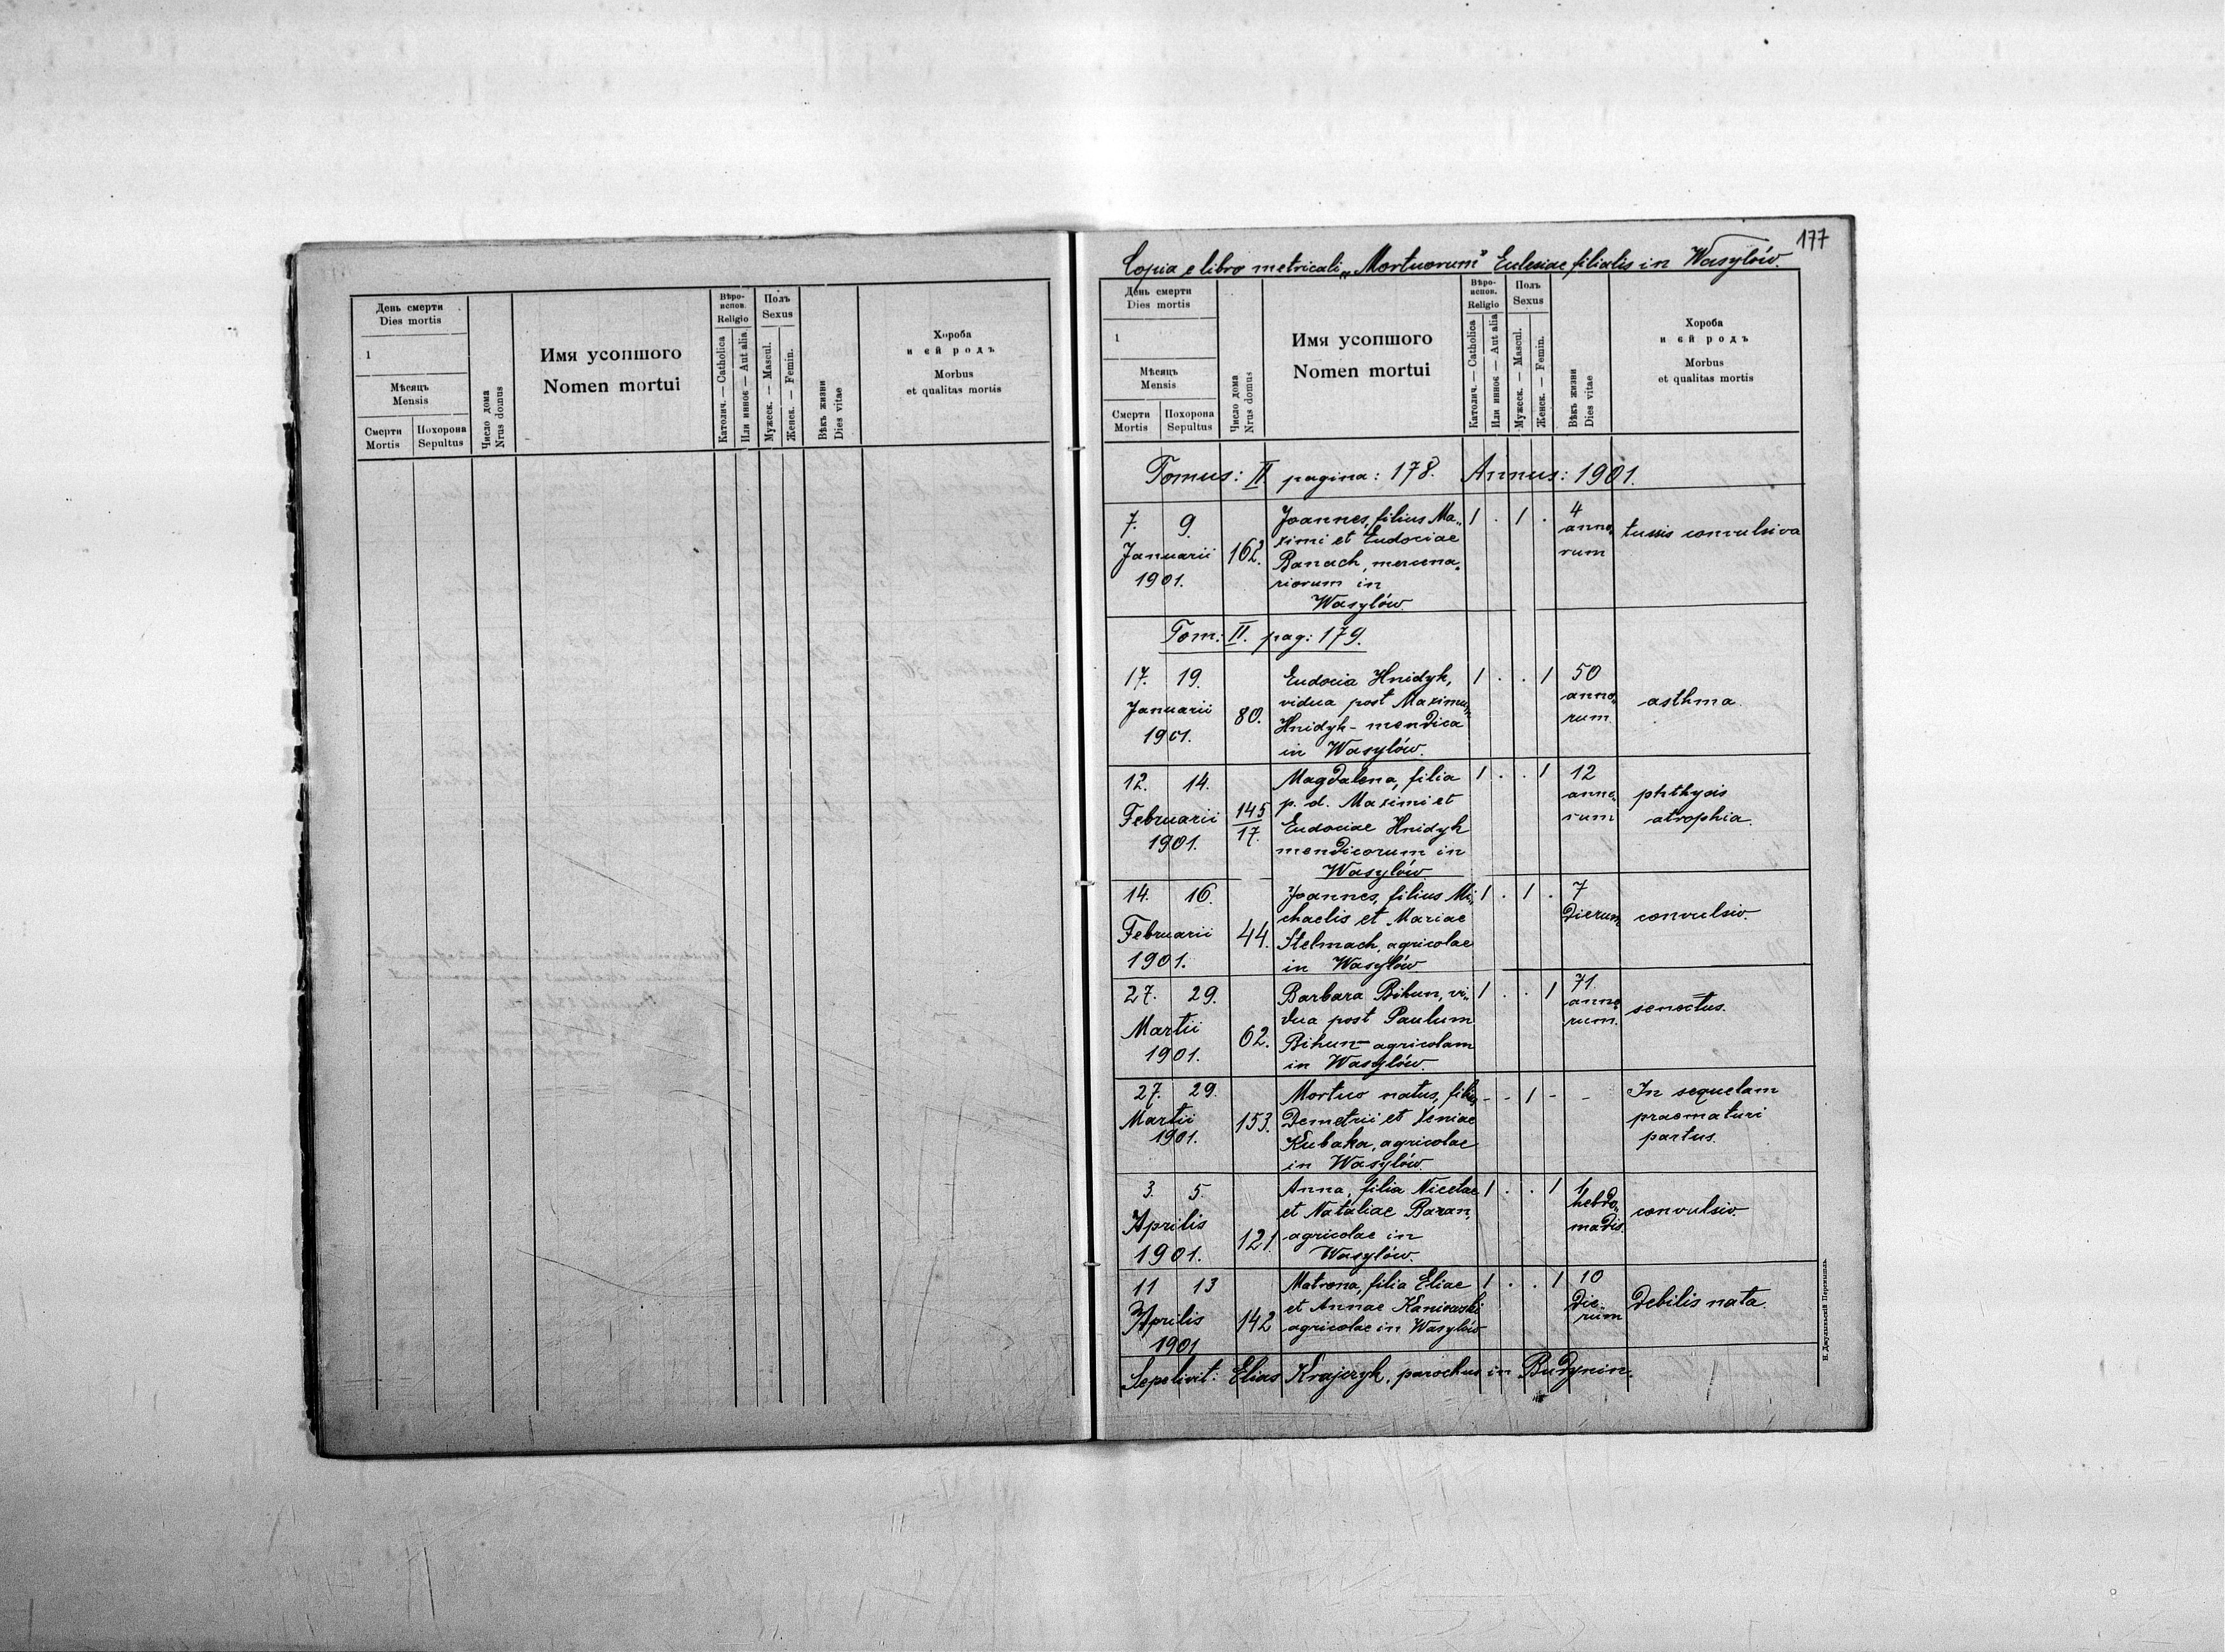 День смерти
Dies mortis
1
Мѣсяць
Mensis
Смерти
Mortis
Похорона
Sepultus
Число дома
Nrus domus
Имя усопшого
Nomen mortui
Вѣро-
испов.
Religio
Католич. — Catholica
Или инноє — Aut alia
Полъ
Sexus
Мужеск. — Mascul.
Женск. — Femin.
Вѣкъ жизни
Dies vitae
Хороба
и єй родъ
Morbus
et qualitas mortis
177
Copia e libro metricali „Mortuorum" Eclesiae filialis in Wasylów.
День смерти
Dies mortis
1
Мѣсяць
Mensis
Смерти
Mortis
Похорона
Sepultus
Число дома
Nrus domus
Имя усопшого
Nomen mortui
Вѣро-
испов.
Religio
Католич. — Catholica
Или инноє — Aut alia
Полъ
Sexus
Мужеск. — Mascul.
Женск. — Femin.
Вѣкъ жизни
Dies vitae
Хороба
и єй родъ
Morbus
et qualitas mortis
Tomus: II pagina: 178. Annus: 1901.
7. 9.
Januarii
1901.
162.
Joannes, filius Ma„
ximi et Eudociae
Banach, mercena„
riorum in
Wasylów.
1 . 1 .
4
anno„
rum
tussis convulsiva
Tom: II. pag: 179.
17. 19.
Januarii
1901.
80.
Eudocia Hnidyk,
vidua post Maximum
Hnidyk - mendica
in Wasylów.
1 . . 1
50
anno„
rum.
asthma.
12. 14.
Februarii
1901.
145
17.
Magdalena, filia
p. d. Maximi et
Eudociae Hnidyk
mendicorum in
Wasylów
1 . . 1
12
anno„
rum
phthysis
atrophia.
14. 16.
Februarii
1901.
44.
Joannes, filius Mi„
chaelis et Mariae
Stelmach, agricolae
in Wasylów.
1 . 1 .
7
dierum
convulsio.
27. 29.
Martii
1901.
62.
Barbara Bihun, vi„
dua post Paulum
Bihun - agricolam
in Wasylów.
1 . . 1
71.
anno
rum.
senectus.
27. 29.
Martii
1901.
153.
Mortuo natus, filius
Demetrii et Xeniae
Kubaka, agricolae
in Wasylów.
- - 1 - -
In sequelam
praematuri
partus.
3. 5.
Aprilis
1901.
121.
Anna, filia Nicetae
et Nataliae Baran,
agricolae in
Wasylów.
1 . . 1
1
hebdo„
madis.
convulsio.
11 13
Aprilis
1901
142
Matrona, filia Eliae
et Annae Kaniowski
agricolae in Wasylów
1 . . 1
10
die„
rum
debilis nata.
Sepelivit: Elias Krajczyk, parochus in Budynin.
Н. Джулыньскій Перемышль.